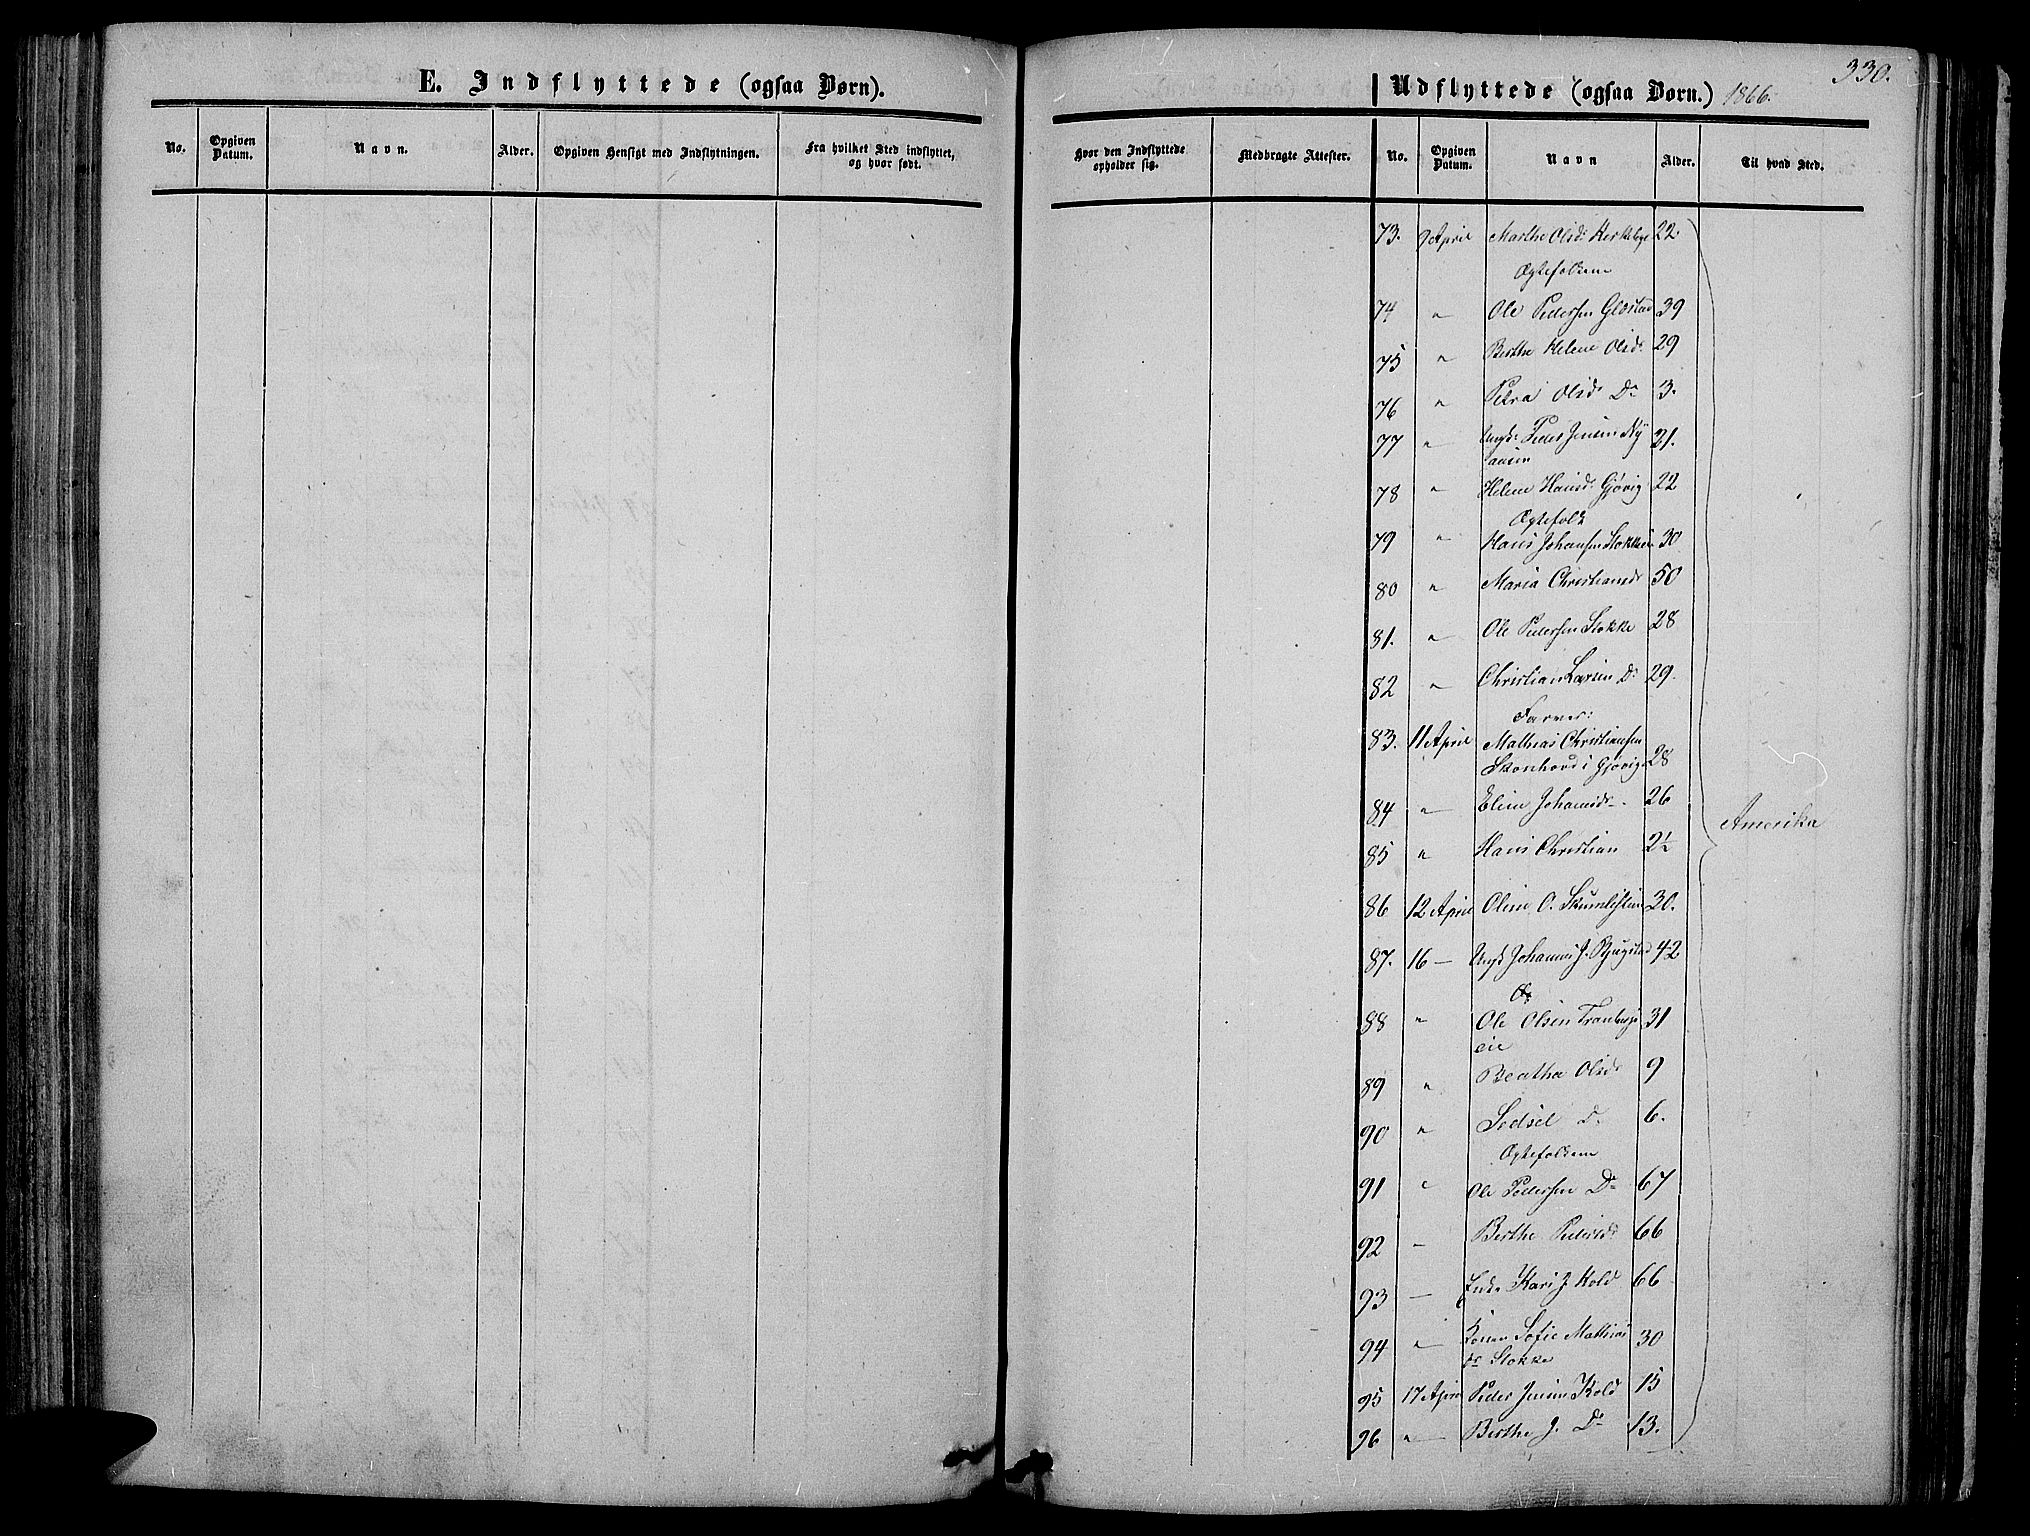 330.
E. Indflyttede (ogsaa Børn).
Udflyttede (ogsaa Børn.) 1866.
No. Opgiven Datum. Navn. Alder. Opgiven Hensigt med Indflytningen. Fra hvilket Sted indflyttet, og hvor født.
Hvor den Indflyttede opholder sig. Medbragte Attester. No. Opgiven Datum. Navn Alder. Til hvad Sted.
73. 9 April Marthe Olsdr 22
Ægtefolkene
74 " Ole Pedersen Glæstad 39
75 " Berthe Helene Olsdr 29
76 " Petra Olsdr Do 3.
77 " Ungk. Peder Jensen Ny 21.
aasen
78 " Helene Hansdr Gjøvig 22
Ægtefolk
79 " Hans Johansen Stokke 30
80 " Maria Christiansdr 50
81. " Ole Pedersen Stokke 28
82 " Christian Larsen Do 29.
83. 11 April Mathias Christiansen
Skonhovd i Gjøvig 28
84 " Eline Johansdr 26
Amerika
85 " Hans Christian 2½
86 12 April Oline O. 30.
87. 16 — Ungk Johannes J. Bjugstad 42
88 " Ole Olsen Tranberg 31
eie
89 " Beatha Olsdr 9
90 " Sidsel Do 6.
Ægtefolkene
91 " Ole Pedersen Do 67
92 — Berthe Pedersdr 66
93 — Enke Kari J. Kold 66
94 " Sofie Mathias 30
dr Stokke
95 17 April Peder Jensen Kold 15
96 " Berthe J. Do 13.